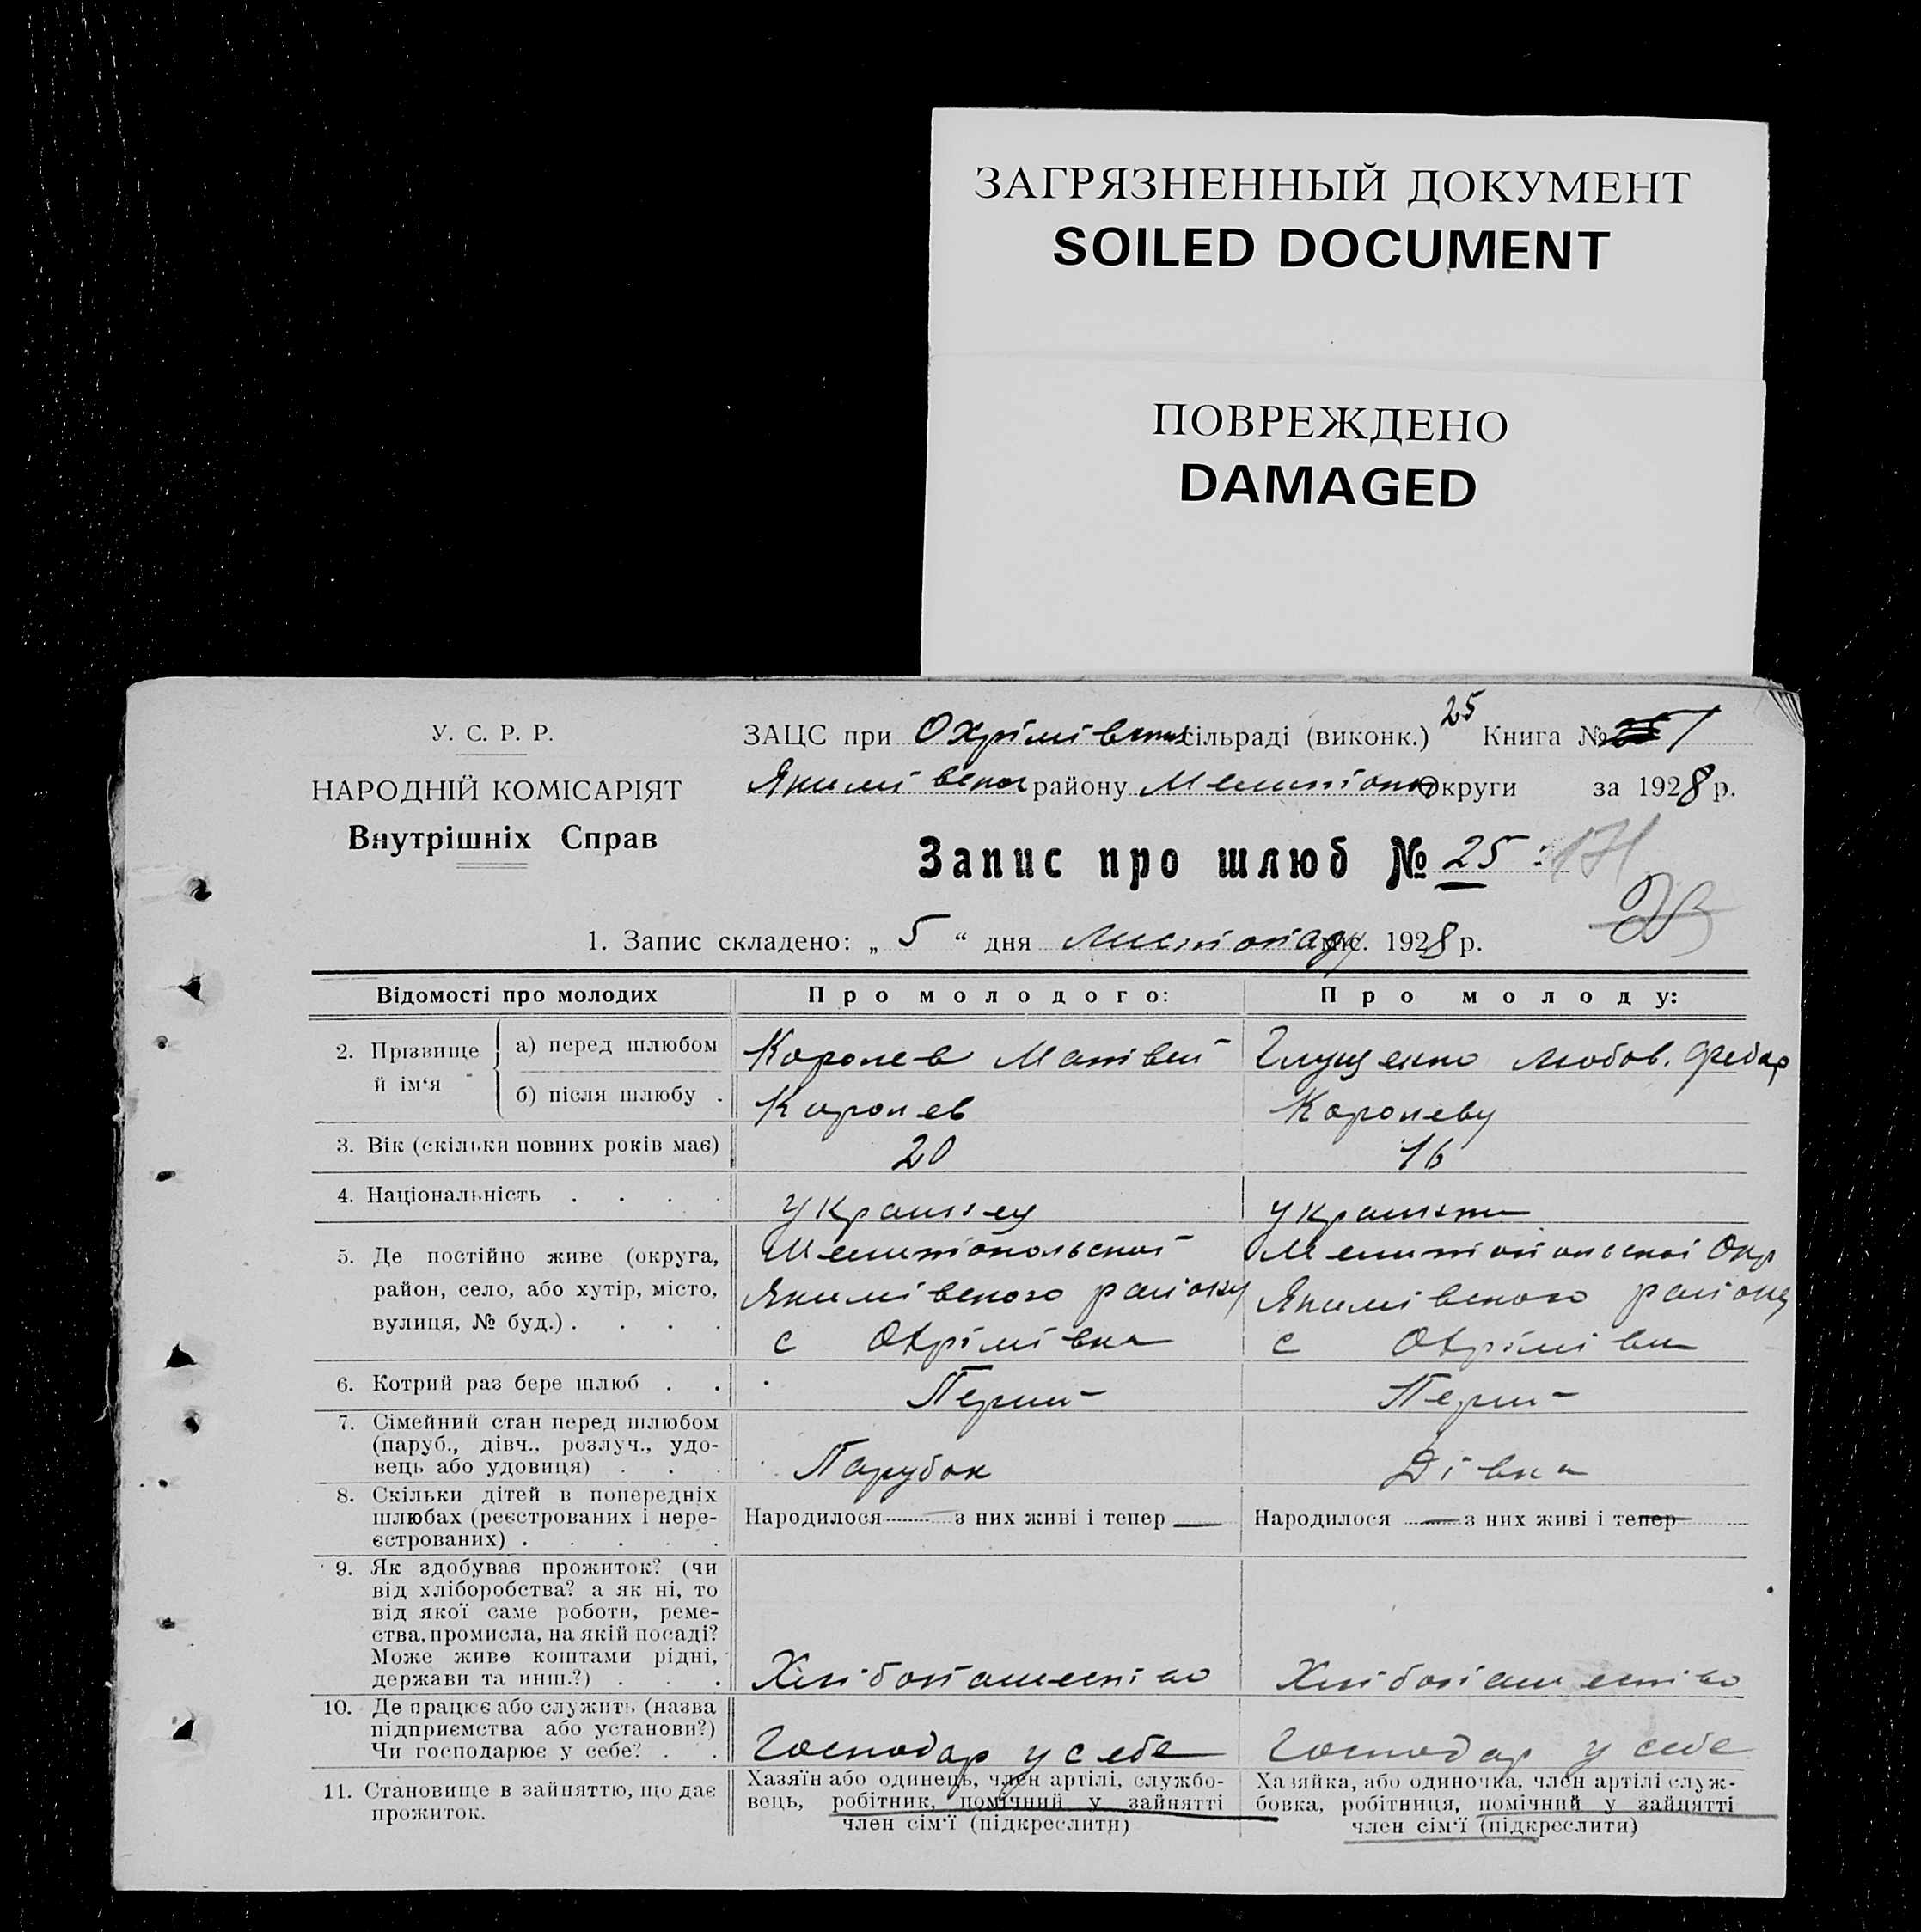 ЗАГРЯЗНЕННЫЙ ДОКУМЕНТ
SOILED DOCUMENT
ПОВРЕЖДЕНО
DAMAGED
У. С. Р. Р.
НАРОДНІЙ КОМІСАРІЯТ
Внутрішніх Справ
25
ЗАЦС при Охрімівськ сільраді (виконк.) Книга № 1
Якимівськ району Мелитіопол Округи за 1928 р.
Запис про шлюб № 25
1. Запис складено: „ 5 “ дня листопаду міс. 1928 р.
Відомості про молодих
Про молодого:
Про молоду:
2. Прізвище й ім‘я
а) перед шлюбом
Королев Матвей
Глущенко Любов. Федор
б) після шлюбу .
Королев
Королеву
3. Вік (скільки повних років має)
20
16
4. Національність . . . .
Украинец
Украинк
5. Де постійно живе (округа,
район, село, або хутір, місто,
вулиця, № буд.) . . . .
Мелитіопольской
Якимівского раиону
с Охрімівка
Мелитіопольскоі Окр
Якимівского раиону
с Охрімівк
6. Котрий раз бере шлюб . .
Перший
Перши
7. Сімейний стан перед шлюбом
(паруб., дівч., розлуч., удо-
вець або удовиця) . . .
Парубок
Дівка
8. Скільки дітей в попередніх
шлюбах (реєстрованих і нере-
єстрованих) . . . . .
Народилося — з них живі і тепер —
Народилося — з них живі і тепер —
9. Як здобуває прожиток? (чи
від хліборобства? а як ні, то
від якої саме роботи, реме-
ства, промисла, на якій посаді?
Може живе коштами рідні,
держави та инш.?) . . .
Хлібопашество
Хлібопашество
10. Де працює або служить (назва
підприємства або установи?)
Чи господарює у себе? . .
Господар у себе
Господар у себе
11. Становище в зайняттю, що дає
прожиток.
Хазяїн або одинець, член артілі, службо-
вець, робітник, помічний у зайнятті
член сім‘ї (підкреслити)
Хазяйка, або одиночка, член артілі служ-
бовка, робітниця, помічний у зайнятті
член сім‘ї (підкреслити)